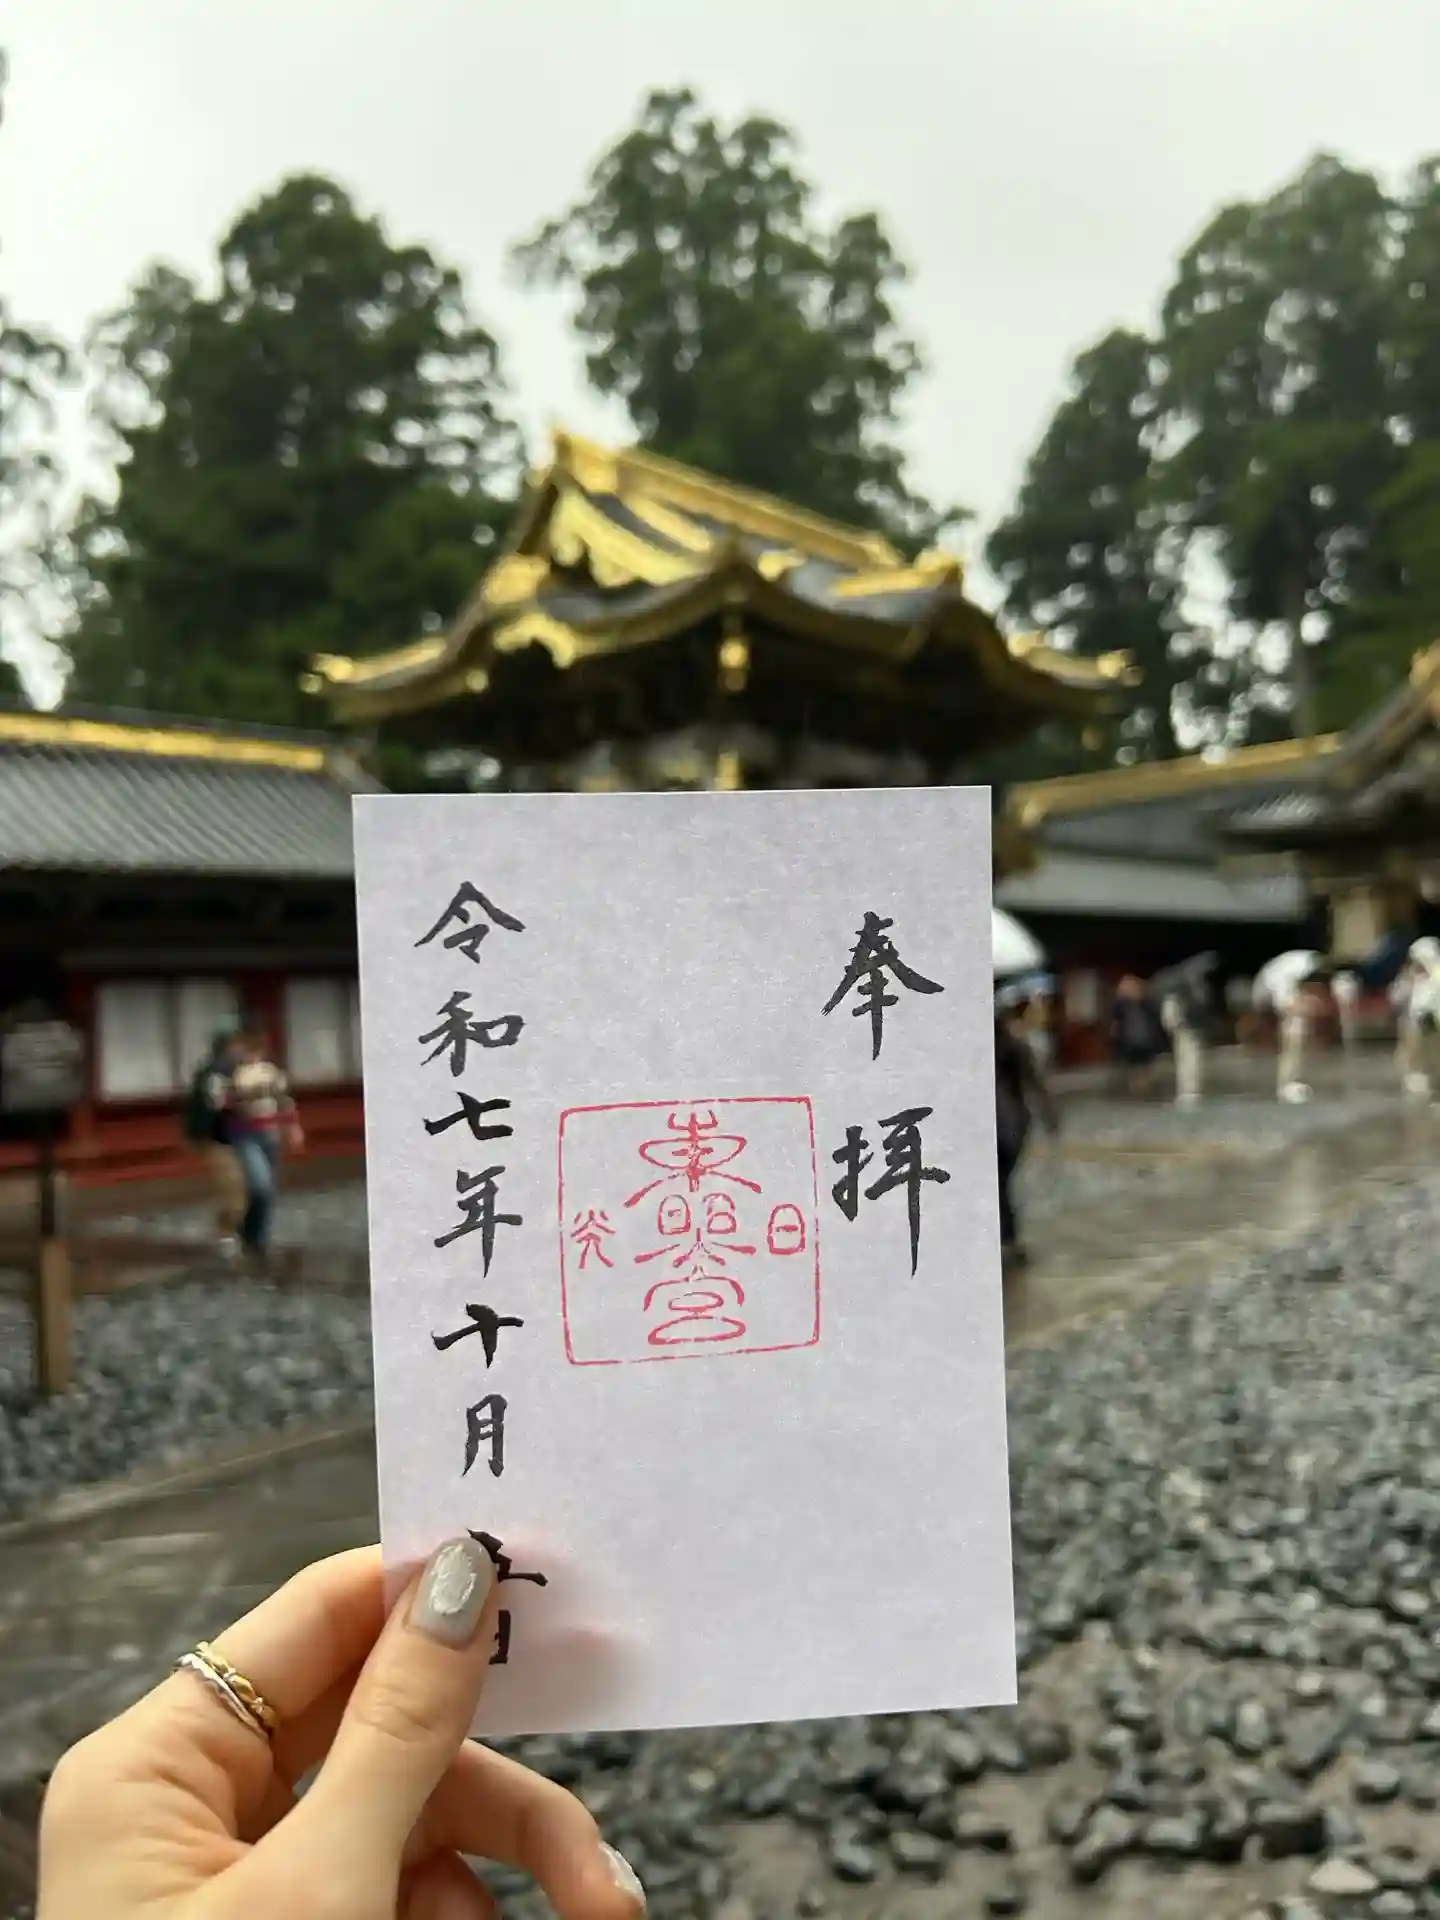 奉拝
日光
東照宮
令和七年十月五日